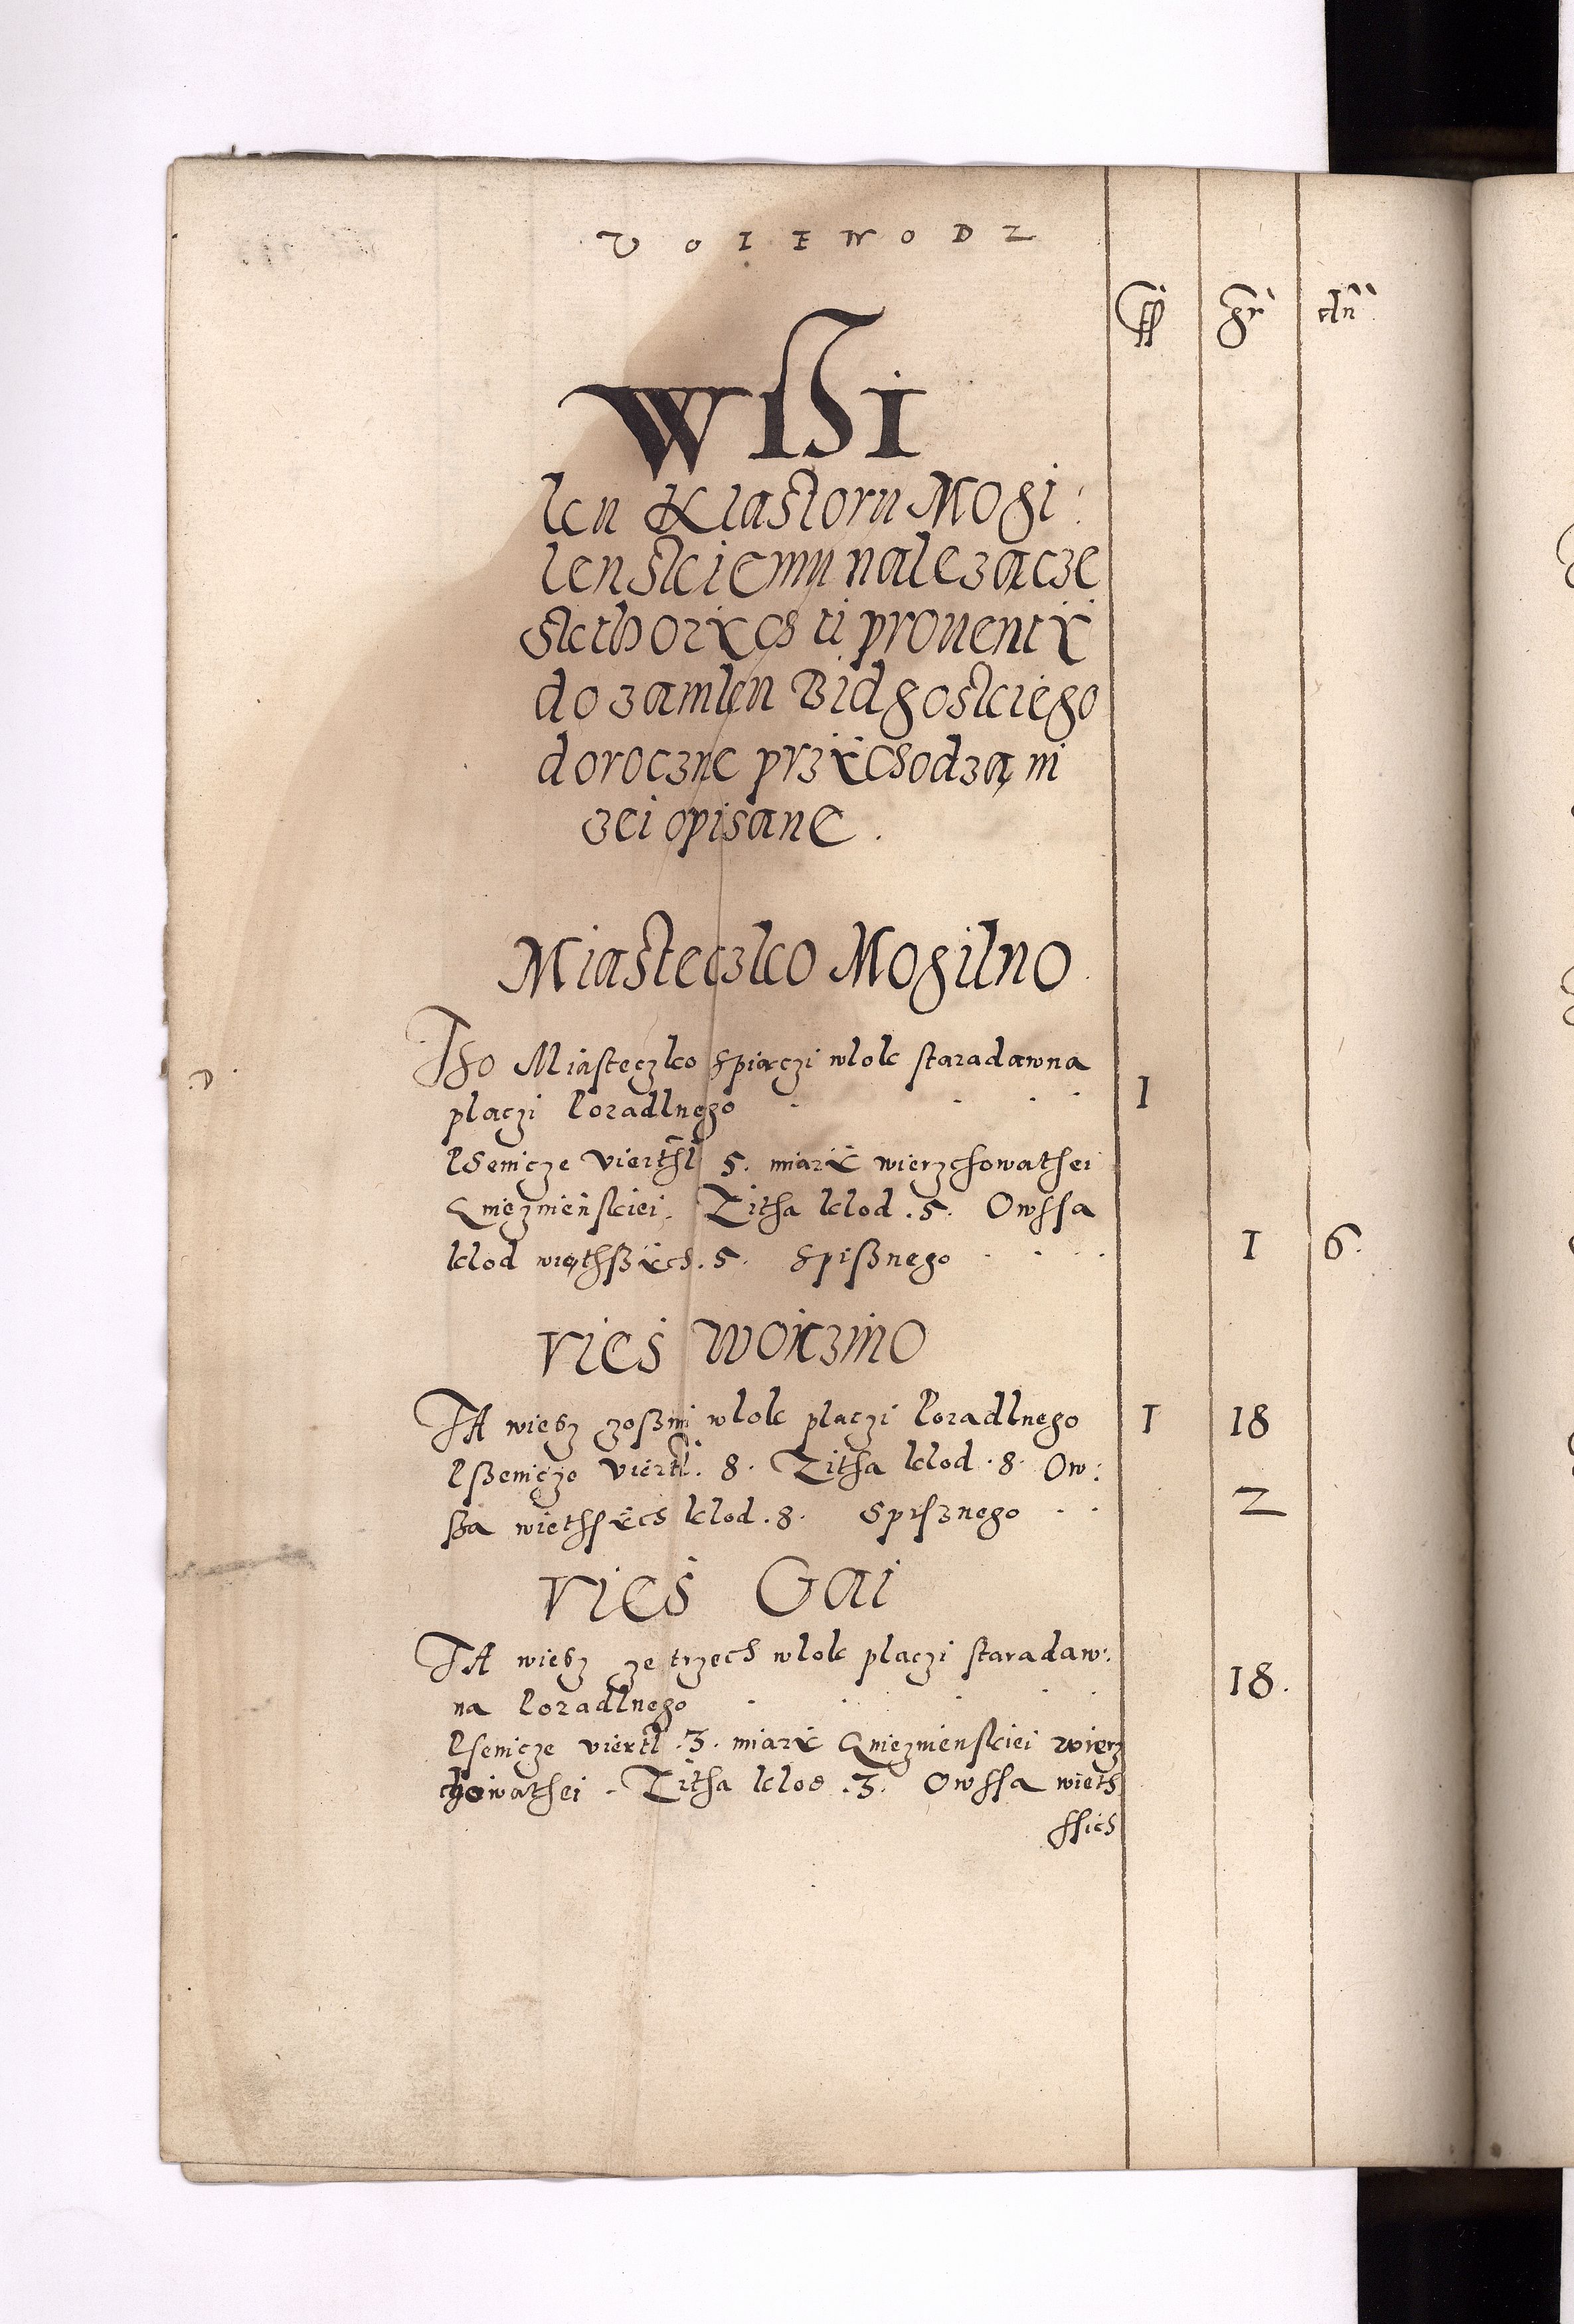 VOIEWODZ
ff gr dn
Wssi
ku Klastoru Mogi:
lenskiemu nalezącze
skthorych ti prouenty
do zamku Bidgoskiego
doroczne przychodzą ni
zei opisane.
Miasteczko Mogilno
Tho Miasteczko spiączi wlok staradawna
placzi Poradlnego I
Psenicze Vierthl 5. miary wierzchowathei
Gnieznienskiei. Zitha klod .5. Owssa
klod więthßych .5. Spißnego I 6.
Vies Woiczino
TA wiesz zoßmi wlok placzi Poradlnego I 18
Pßenicze Viertl. 8. Zitha klod .8. Ow:
ßa wiethsych klod .8. Spisznego 2
Vies Gai
TA wiesz ze trzech wlok placzi staradaw:
na Poradlnego 18.
Psenicze viertl .3. miary Gnieznienskiei wierz
chowathei. Zitha klod .3. Owssa wieth
ssich